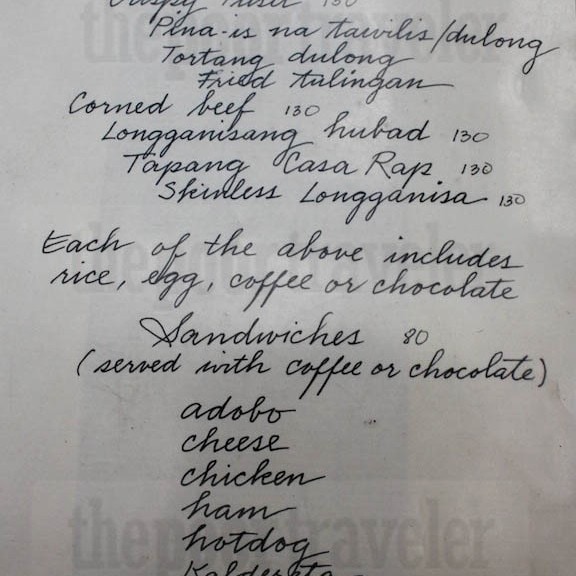 Crispy Tuser 130
Pina-is na tawilis/dulong
Tortang dulong
Fried tulingan
Corned beef 130
Longganisang hubad 130
Tapang Casa Rap 130
Skinless Longganisa 130
Each of the above includes
rice, egg, coffee or chocolate
Sandwiches 80
(served with coffee or chocolate)
adobo
cheese
chicken
ham
hotdog
thepoortraveler